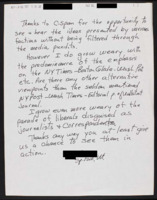 Thanks to Cspan for the opportunity to
see & hear the ideas presented by various
factions without being filtered through
the media pundits.
However I do grow weary with
the predominance of the emphasis
on the NY Times - Boston Globe - Wash. Post
etc. Are there any other alternative
viewpoints than the seldom mentioned
NY Post - Wash Times - Editorial
Journal.
I grow even more weary at the
parade of liberals disguised as
journalists & correspondents.
Thanks any way you at-least give
us a chance to see them in
action.